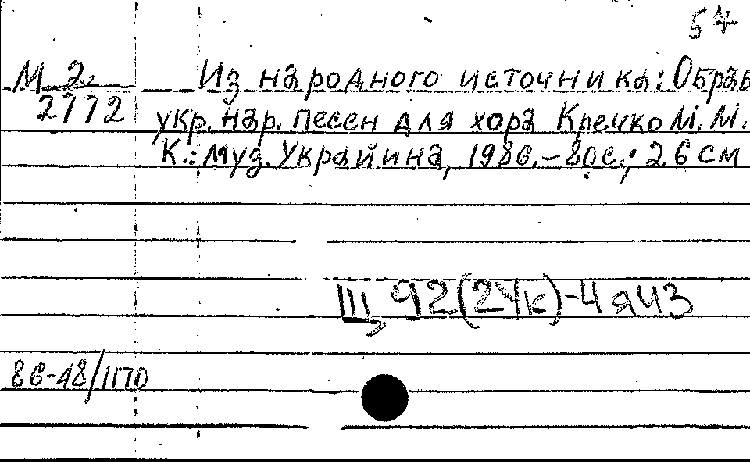 54
М 2 Из народного источника: Обраб
2772 укр. нар. песен для хора Кречко М. М.
К.: Муз. Украйина, 1986.-80с.; 26 см
Щ 92(2Ук)-4 я43
86-48/1170